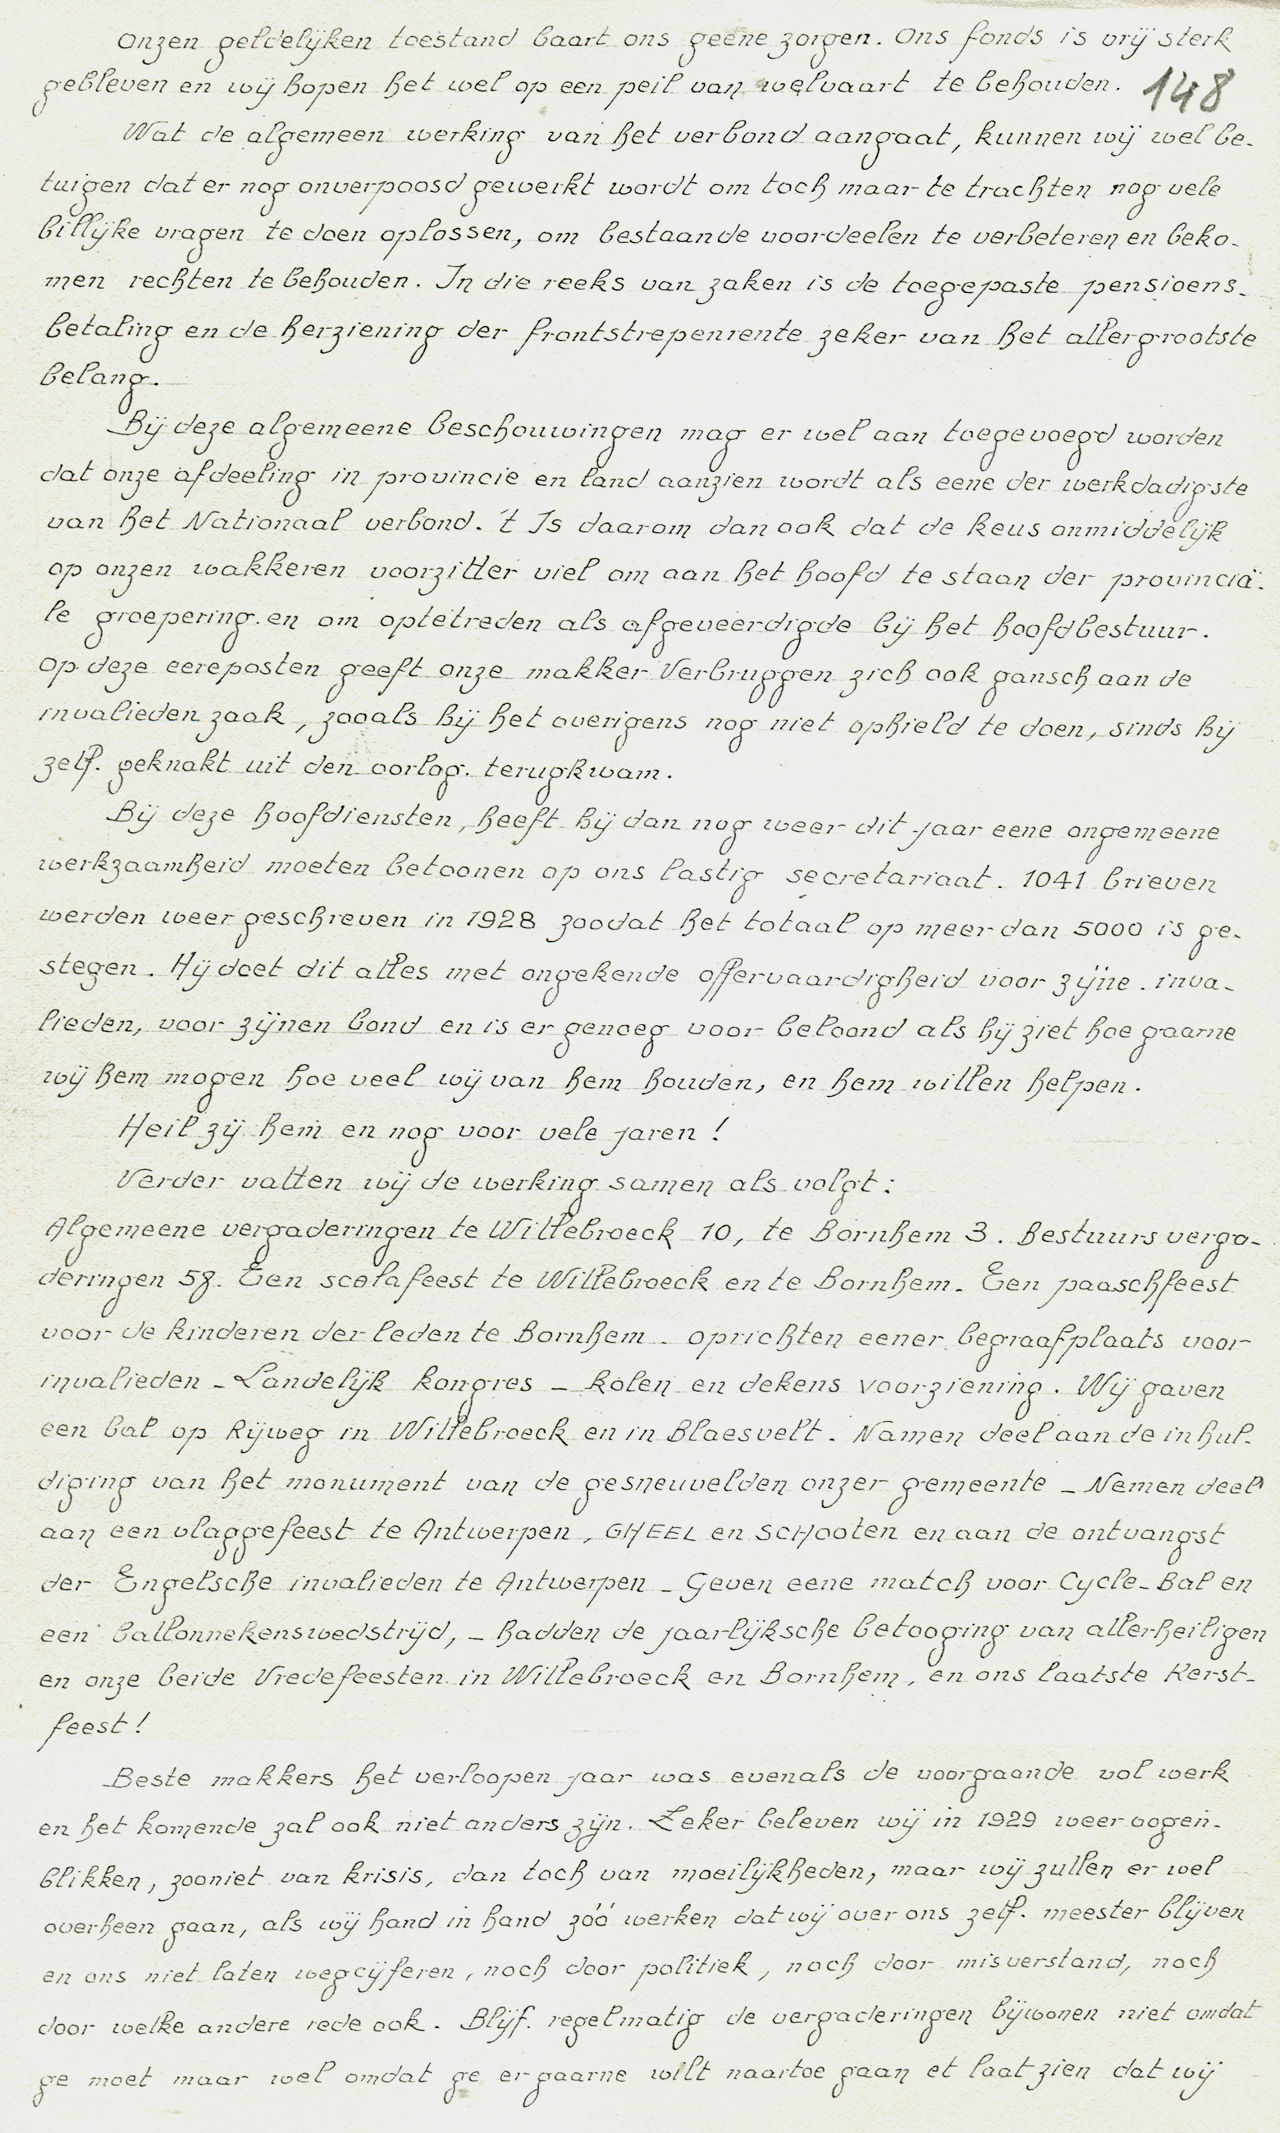 Onzen geldelijken toestand baart ons geene zorgen. Ons fonds is vrij sterk
gebleven en wij hopen het wel op een peil van welvaart te behouden.
148
Wat de algemeen werking van het verbond aangaat, kunnen wij wel be-
tuigen dat er nog onverpoosd gewerkt wordt om toch maar te trachten nog vele
billijke vragen te doen oplossen, om bestaande voordeelen te verbeteren en beko-
men rechten te behouden. In die reeks van zaken is de toegepaste pensioens-
betaling en de herziening der frontstrepenrente zeker van het allergrootste
belang.
Bij deze algemeene beschouwingen mag er wel aan toegevoegd worden
dat onze afdeeling in provincie en land aanzien wordt als eene der werkdadigste
van het Nationaal verbond. 't Is daarom dan ook dat de keus onmiddelijk
op onzen wakkeren voorzitter viel om aan het hoofd te staan der provincia-
le groepering en om optetreden als afgeveerdigde bij het hoofdbestuur.
Op deze eereposten geeft onze makker Verbruggen zich ook gansch aan de
invalieden zaak, zooals hij het overigens nog niet ophield te doen, sinds hij
zelf geknakt uit den oorlog terugkwam.
Bij deze hoofdiensten, heeft hij dan nog weer dit jaar eene ongemeene
werkzaamheid moeten betoonen op ons lastig secretariaat. 1041 brieven
werden weer geschreven in 1928 zoodat het totaal op meer dan 5000 is ge-
stegen. Hij doet dit alles met ongekende offervaardigheid voor zijne inva-
lieden, voor zijnen bond en is er genoeg voor beloond als hij ziet hoe gaarne
wij hem mogen hoe veel wij van hem houden, en hem willen helpen.
Heil zij hem en nog voor vele jaren !
Verder vatten wij de werking samen als volgt :
Algemeene vergaderingen te Willebroeck 10, te Bornhem 3. Bestuurs verga-
deringen 58. Een scolafeest te Willebroeck en te Bornhem. Een paaschfeest
voor de kinderen der leden te Bornhem - oprichten eener begraafplaats voor
invalieden - Landelijk kongres - kolen en dekens voorziening. Wij gaven
een bal op Rijweg in Willebroeck en in Blaesvelt. Namen deel aan de inhul-
diging van het monument van de gesneuvelden onzer gemeente - Nemen deel
aan een vlaggefeest te Antwerpen, GHEEL en SCHooten en aan de ontvangst
der Engelsche invalieden te Antwerpen - Geven eene match voor Cycle-Bal en
een ballonnekenswedstrijd, - hadden de jaarlijksche betooging van allerheiligen
en onze beide Vredefeesten in Willebroeck en Bornhem, en ons laatste Kerst-
feest !
Beste makkers het verloopen jaar was evenals de voorgaande vol werk
en het komende zal ook niet anders zijn. Zeker beleven wij in 1929 weer oogen-
blikken, zooniet van krisis, dan toch van moeilijkheden, maar wij zullen er wel
overheen gaan, als wij hand in hand zóó werken dat wij over ons zelf meester blijven
en ons niet laten wegcijferen, noch door politiek, noch door misverstand, noch
door welke andere rede ook. Blijf regelmatig de vergaderingen bijwonen niet omdat
ge moet maar wel omdat ge er gaarne wilt naartoe gaan et laat zien dat wij